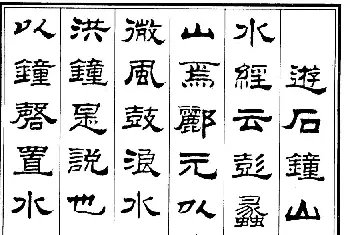 遊石鐘山
水經云彭蠡
山焉酈元以
微風鼓浪水
洪鐘是說也
以鐘磬置水